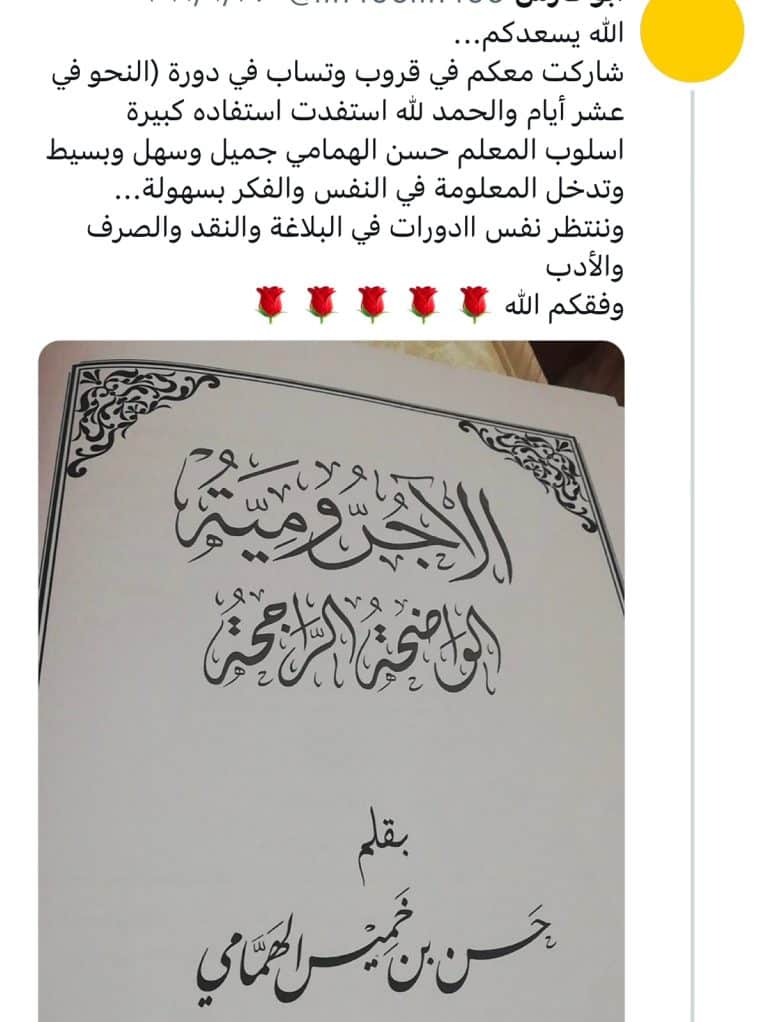 الله يسعدكم...
شاركت معكم في قروب وتساب في دورة (النحو في
عشر أيام والحمد لله استفدت استفاده كبيرة
اسلوب المعلم حسن الهمامي جميل وسهل وبسيط
وتدخل المعلومة في النفس والفكر بسهولة...
وننتظر نفس اادورات في البلاغة والنقد والصرف
والأدب
وفقكم الله 🌹 🌹 🌹 🌹 🌹
الآجُرُّومِيَّةُ
الوَاضِحَةُ الرَّاجِحَةُ
بقلم
حَسن بن خَمِيْس الهَمَّامي